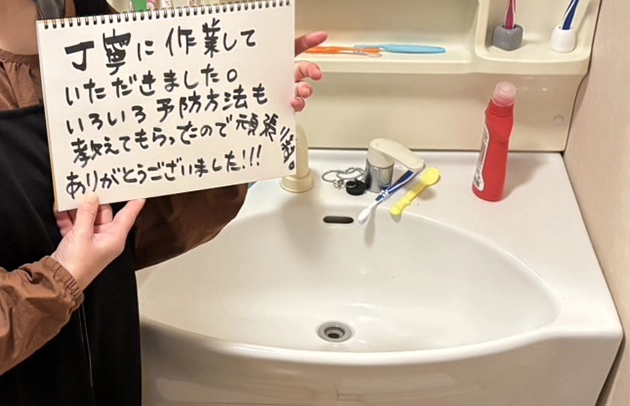 丁寧に作業して
いただきました。
いろいろ予防方法も
教えてもらったので頑張ります。
ありがとうございました!!!